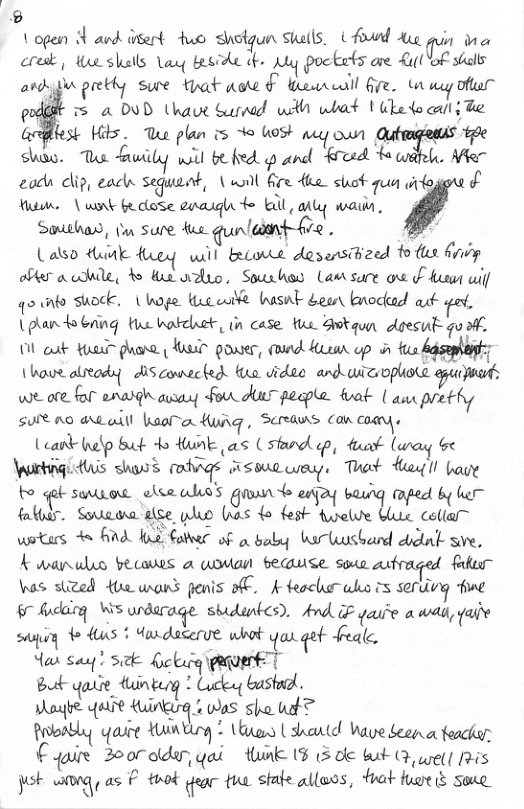 8
I open it and insert two shotgun shells. I found the gun in a
creek, the shells lay beside it. My pockets are full of shells
and I'm pretty sure that none of them will fire. In my other
pocket is a DVD I have burned with what I like to call: The
Greatest Hits. The plan is to host my own Outrageous type
show. The family will be tied up and forced to watch. After
each clip, each segment, I will fire the shot gun into one of
them. I wont be close enough to kill, only maim.
Somehow, i'm sure the gun wont fire.
I also think they will become desensitized to the firing
after a while, to the video. Somehow I am sure one of them will
go into shock. I hope the wife hasnt been knocked out yet.
I plan to bring the hatchet, in case the shotgun doesn't go off.
I'll cut their phone, their power, round them up in the basement.
I have already disconnected the video and microphone equipment.
we are far enough away from other people that I am pretty
sure no one will hear a thing. Screams can carry.
I cant help but to think, as I stand up, that I may be
hurting this show's ratings in some way. That they'll have
to get someone else who's grown to enjoy being raped by her
father. Someone else who has to test twelve blue collar
workers to find the father of a baby her husband didn't sire.
A man who becomes a woman because some outraged father
has sliced the man's penis off. A teacher who is serving time
for fucking his underage student(s). And if you're a man, you're
saying to this: You deserve what you get freak.
You say: Sick fucking pervert.
But you're thinking: Lucky bastard.
Maybe you're thinking: Was she hot?
Probably you're thinking: I knew I should have been a teacher.
If you're 30 or older, you think 18 is ok but 17, well 17 is
just wrong, as if that year the state allows, that there is some